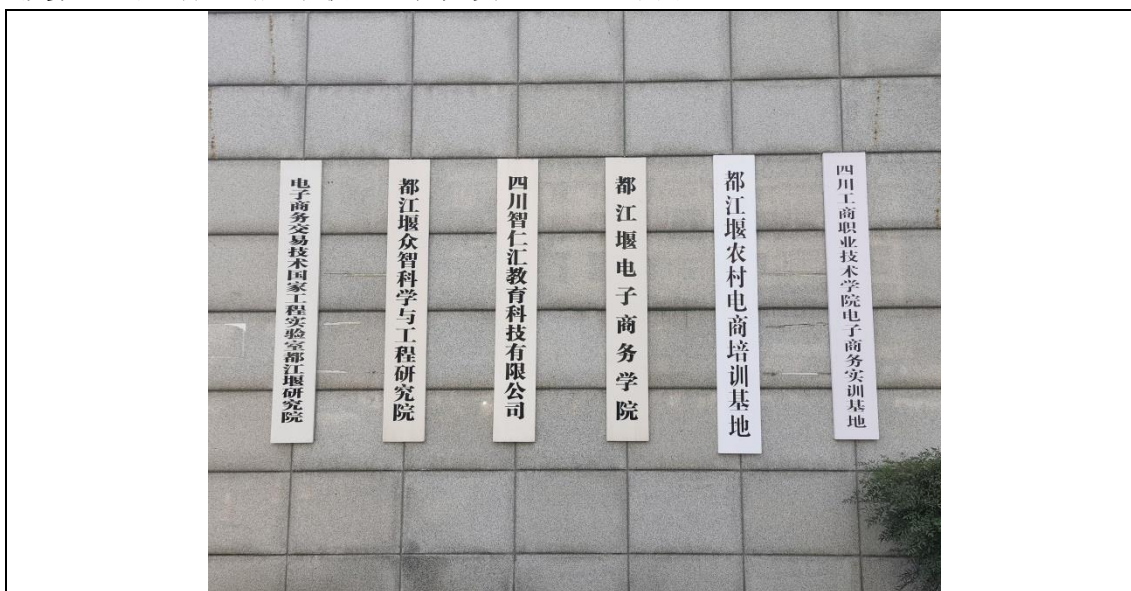 电子商务交易技术国家工程实验室都江堰研究院
都江堰众智科学与工程研究院
四川智仁汇教育科技有限公司
都江堰电子商务学院
都江堰农村电商培训基地
四川工商职业技术学院电子商务实训基地